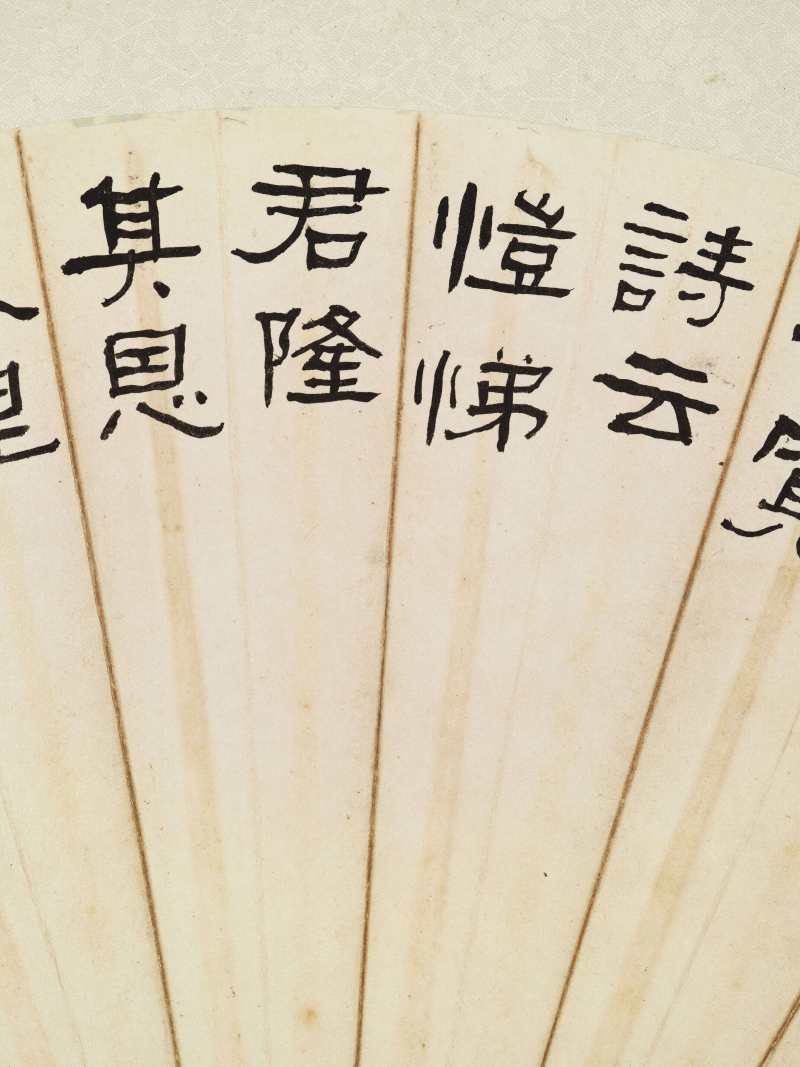 寬
詩云
愷悌
君隆
其恩
里